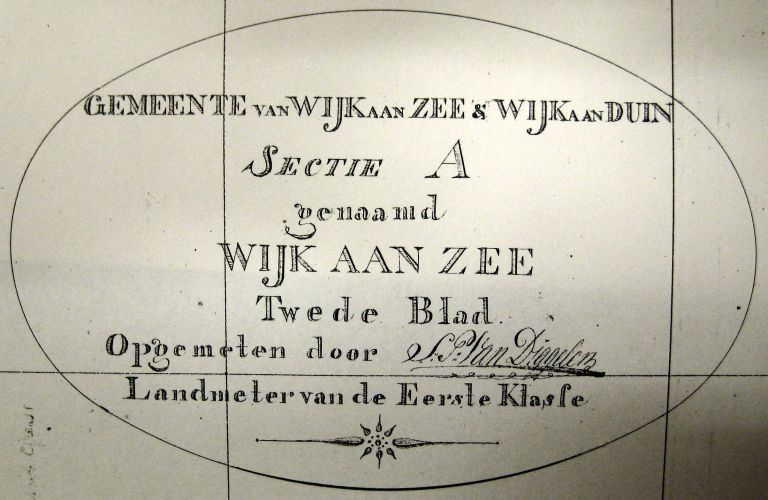 GEMEENTE VAN WIJK AAN ZEE & WIJK AAN DUIN
SECTIE A
genaamd
WIJK AAN ZEE
Twede Blad.
Opgemeten door S. P. Van Diggelen
Landmeter van de Eerste Klasse